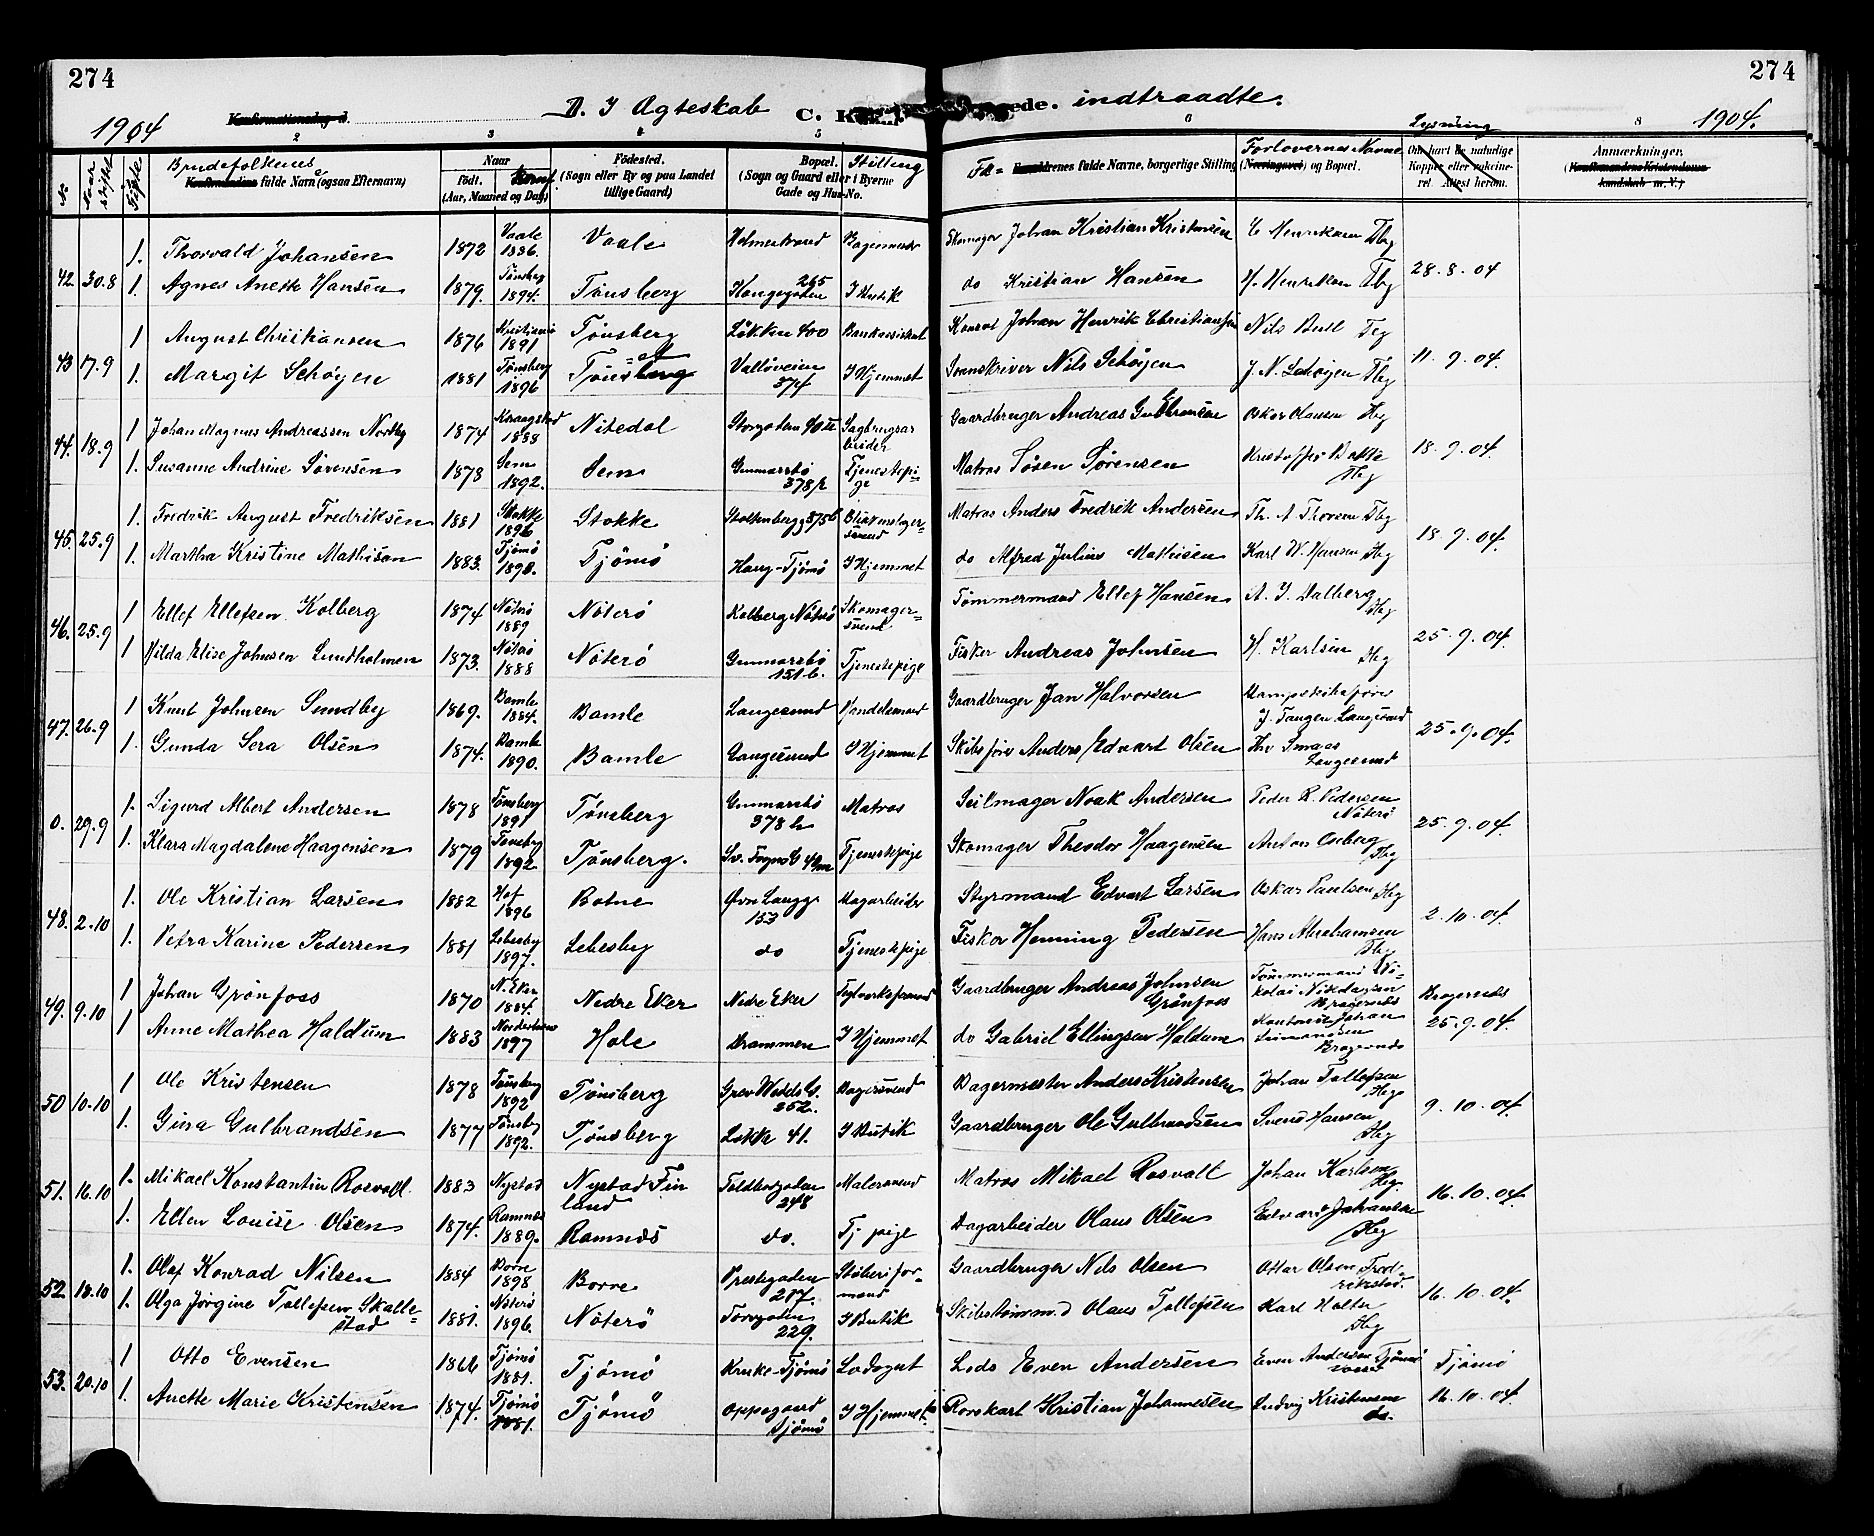 274
274
1904
D. I Ægteskab
C.
indtraadte.
1904.
Konfirmationsdag d.
Lysning
2 3 4 5 6 8
No.
Brudefolkenes
Konfirmandens fulde Navn (ogsaa Efternavn)
Naar
født.
(Aar, Maaned og Dag)
Fødested.
(Sogn eller By og paa Landet
tillige Gaard)
Bopæl.
(Sogn og Gaard eller i Byerne
Gade og Hus-No.
Stilling
Fæ= Forældrenes fulde Navne, borgerlige Stilling (Næringsvei) og Bopæl.
Forlovernes Navne
Om havt de naturlige
Kopper eller vakcine-
ret. Attest herom.
Anmærkninger.
(Konfirmandens Kristendoms-
kundskab m. V.)
42 30.8 1. Thorvald Johansen 1872 Vaale 1886. Vaale Holmestrand Bagermester Skomager Johan Kristian Kristensen C Henriksen Tbg 28.8.04
1. Agnes Anette Hansen 1879. Tønsberg 1894. Tønsberg Kongegaden 265 I Butik do Kristian Hansen H. Henriksen Tbg
43 17.9 1 August Christiansen 1876 Kristiania 1891 Tønsberg Løkken 400 Bankassistent Konsul Johan Henrik Christiansen Nils Bull Tbg 11.9.04
1. Margit Schøyen 1881 Tønsberg 1896 Tønsberg Valløveien 374 I Hjemmet Sorenskriver Nils Schøyen J. N. Schøyen Tbg
44. 18.9 1 Johan Magnus Andreassen Nordby 1874 Kraagstad 1888 Nitedal Storgaden 90 Sagbrugsarbeider Gaardbruger Andreas Gulbransen Oskar Olausen Tbg 18.9.04
1. Susanne Andrine Sørensen 1878 Sem 1892. Sem Gunnarsbø 378 Tjenestepige Matros Søren Sørensen Kristoffer Bakke Tbg
45. 25.9 1. Fredrik August Fredriksen 1881 Stokke 1896 Stokke Stoltenbergg 375 b Matros Anders Fredrik Andersen Th. A Thoresen Tbg 18.9.04.
1. Martha Kristine Mathisen 1883. Tjømø 1898. Tjømø Haug-Tjømø I Hjemmet do Alfred Julius Mathisen Karl W. Hansen Tbg
46. 25.9 1 Ellef Ellefsen Kolberg 1874 Nøterø 1889 Nøterø Kolberg Nøterø Skomagersvend Tømmermand Ellef Hansen A. J. Dalberg Tbg 25.9.04.
1 Hilda Elise Johnsen Lundholmen 1873. Nøterø 1888 Nøterø Gunnarsbø 151 b. Tjenestepige Fisker Andreas Johnsen H. Karlsen Tbg
47. 26.9 1 Knut Johnsen Sundby 1869. Bamle 1884. Bamle Langesund Handelsmand Gaardbruger Jan Halvorsen Dampskibsfører J. Tangen Langesund 25.9.04.
1. Gunda Sera Olsen 1874. Bamle 1890. Bamle Langesund I Hjemmet Skibsfører Anders Edvart Olsen Langesund
0. 29.9 1. Sigurd Albert Andersen 1878 Tønsberg 1891 Tønsberg Gunnarsbø 378 b Matros Seilmager Noak Andersen Peder R. Pedersen Nøterø 25.9.04.
1. Klara Magdalene Haagensen 1879 Tønsberg 1892 Tønsberg. Tjenestepige Skomager Theodor Haagensen Anton Oseberg Tbg
48. 2.10 1. Ole Kristian Larsen 1882 Hof 1896 Botne Øvre Langg. 153 Dagarbeider Styrmand Edvart Larsen Oskar Paulsen Tbg 2.10.04.
1. Petra Karine Pedersen 1881 Lebesby 1897. Lebesby do Tjenestepige Fisker Henning Pedersen Hans Abrahamsen Tbg
49. 9.10 1 Johan Grønfoss 1870 N. Eker 1884. Nedre Eker Nedre Eker Gaardbruger Andreas Johnsen Grønfoss Tømmermand Nikolai Nikolaysen Bragernæs Bragernæs
1 Anne Mathea Haldum 1883 1897 Hole Drammen I Hjemmet do Gabriel Ellingsen Haldum Kontorist Johan Simonsen Bragernæs 25.9.04.
50 10.10 1 Ole Kristensen 1878 Tønsberg 1892 Tønsberg Grev Wedels G. 252. Bagersvend Bagermester Anders Kristensen Johan Tollefsen Tbg 9.10.04.
1. Gina Gulbrandsen 1877 Tønsberg 1892. Tønsberg Løkke 41. I Butik Gaardbruger Ole Gulbrandsen Svend Hansen Tbg
51. 16.10 1. Mikael Konstantin Rosvall. 1883 Nystad Nystad Finland Toldbodgaden 248 Malersvend Matros Mikael Rosvall Johan Karlsen Tbg. 16.10.04.
1. Ellen Louise Olsen 1874. Ramnæs 1889. Ramnæs do. Tj. pige Dagarbeider Olaus Olsen Edvard Johansen Tbg
52. 18.10 1. Olaf Konrad Nilsen 1884 Borre 1898 Borre Prestegaden 217. Støberiformand Gaardbruger Nils Olsen Ottar Olsen Fredrikstad. 16.10.04.
1. Olga Jørgine Tollefsen Skallestad 1881. Nøterø 1896. Nøterø Torvgaden 229. I Butik Skibstømmermd Olaus Tollefsen Karl Holte Tbg
53. 20.10 1 Otto Evensen 1866 Tjømø 1881. Tjømø Kruke-Tjømø Lodsgut Lods Even Andersen Even Andersen Tjømø Tjømø
1. Anette Marie Kristensen 1874. Tjømø 1881. Tjømø Oppegaard Tjømø I Hjemmet Rorskarl Kristian Johannesen Ludvig Kristensen do. 16.10.04.